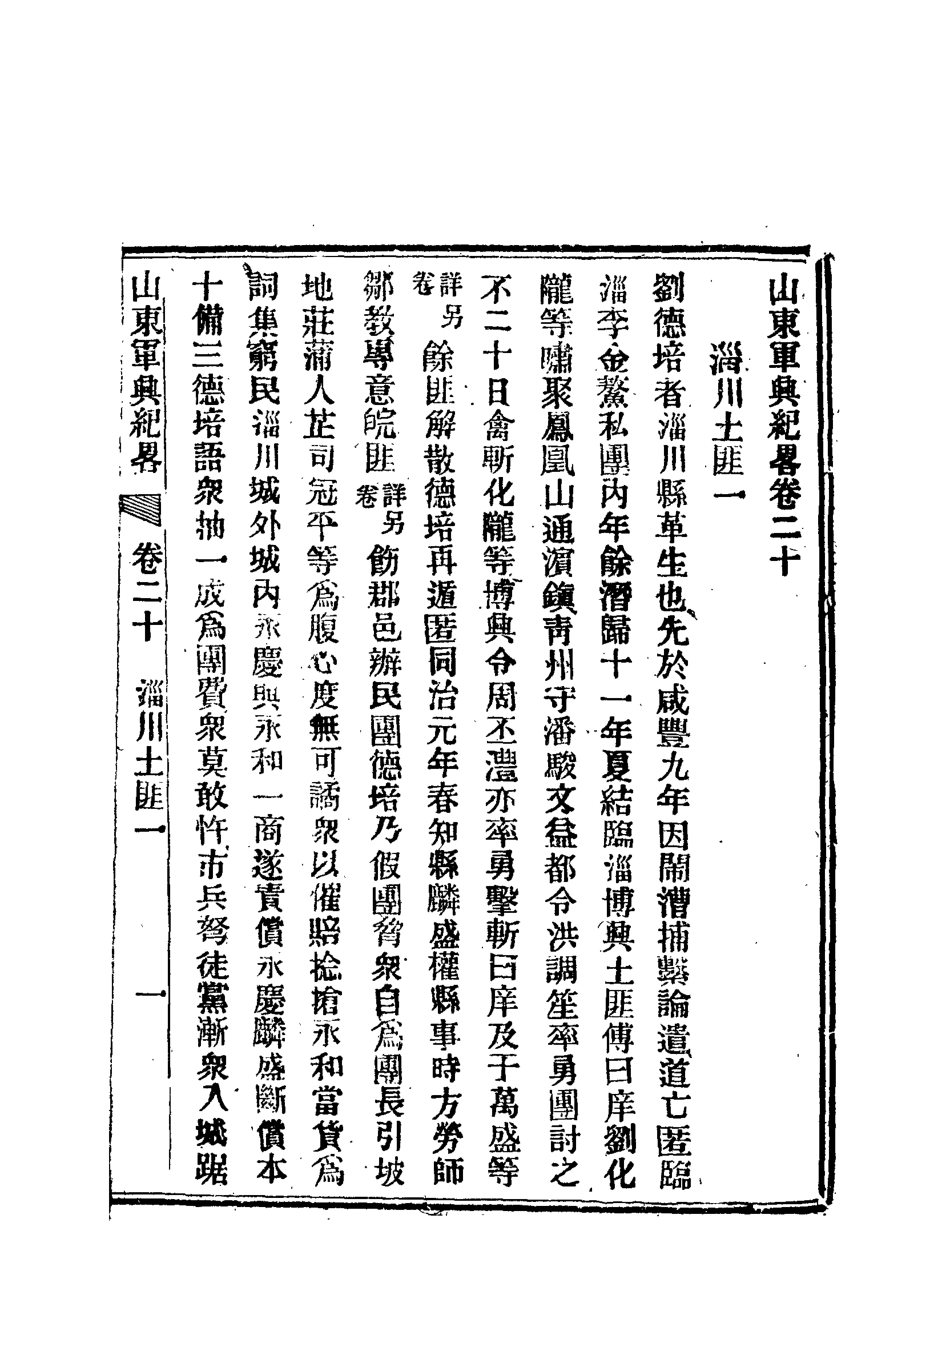 山東軍興紀畧卷二十
淄川土匪一
劉德培者淄川縣革生也先於咸豐九年因鬧漕捕繫論遣道亡匿臨
淄李金鰲私團內年餘潛歸十一年夏結臨淄博興土匪傅曰庠劉化
隴等嘯聚鳳凰山通濱鎮靑州守潘駿文益都令洪調笙率勇團討之
不二十日禽斬化隴等博興令周丕澧亦率勇擊斬曰庠及于萬盛等
詳另卷餘匪解散德培再遁匿同治元年春知縣麟盛權縣事時方勞師
鄒教專意皖匪詳另卷飭郡邑辦民團德培乃假團脅衆自爲團長引坡
地莊蒲人芷司冠平等爲腹心度無可譎衆以催賠捻搶永和當貨爲
詞集窮民淄川城外城內永慶與永和一商遂責償永慶麟盛斷償本
十備三德培語衆抽一成爲團費衆莫敢忤市兵弩徒黨漸衆入城踞
山東軍興紀畧 卷二十 淄川土匪一 一